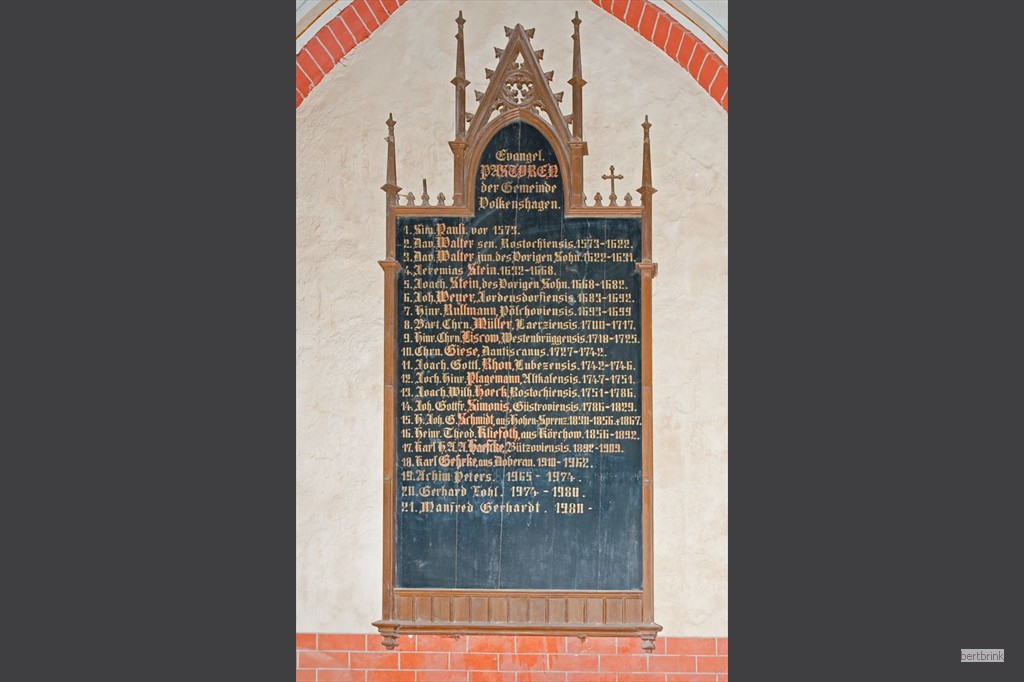 Evangel.
PASTOREN
der Gemeinde
Volkenshagen.
1. Sim. Pauli. vor 1573.
2. Dav. Walter sen. Rostochiensis. 1573-1622.
3. Dav. Walter jun. des Vorigen Sohn. 1622-1631.
4. Jeremias Stein. 1632-1668.
5. Joach. Stein, des Vorigen Sohn. 1668-1682.
6. Joh. Meyer, Jordensdorfiensis. 1683-1692.
7. Hinr. Rullmann, Pölchoviensis. 1693-1699
8. Bart. Chrn. Müller, Laerziensis. 1700-1717.
9. Hinr. Chrn. Liscow, Westenbrüggensis. 1718-1725.
10. Chrn. Giese, Dantiscanus. 1727-1742.
11. Joach. Gottl. Rhon, Lubezensis. 1742-1746.
12. Joch. Hinr. Plagemann, Altkalensis. 1747-1751.
13. Joach. Wilh. Hoeck, Rostochiensis. 1751-1786.
14. Joh. Gottfr. Simonis, Güstroviensis. 1786-1829.
15. H. Joh. G. Schmidt, aus Hohen-Sprenz. 1830-1856. + 1867.
16. Heinr. Theod. Kliefoth, aus Körchow. 1856-1892.
17. Karl H. A. A. Haefcke, Bützoviensis. 1892-1909.
18. Karl Gehrke, aus Doberan. 1910-1962.
19. Achim Peters. 1965 - 1974.
20. Gerhard Lohl. 1974 - 1980.
21. Manfred Gerhardt. 1980 -
bertbrink